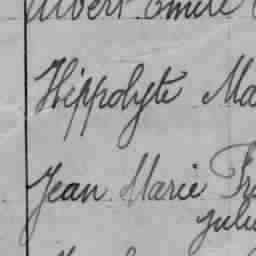 Albert Emile
Hippolyte Ma
Jean Marie Fra
Julie